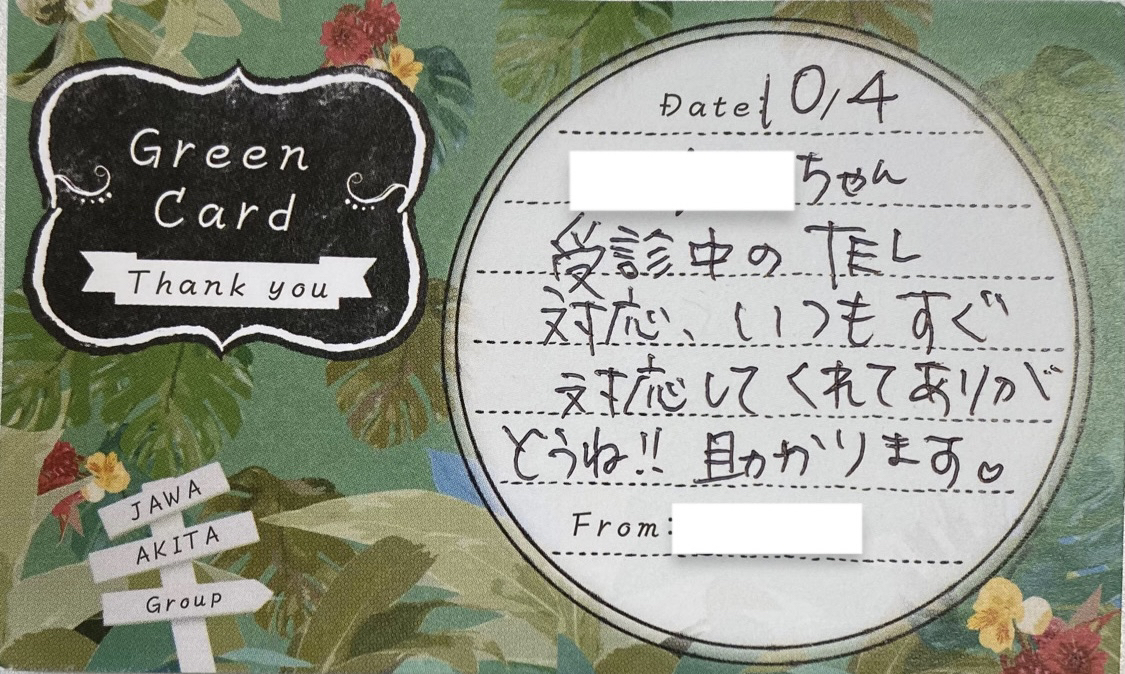 Green
Card
Thank you
JAWA
AKITA
Group
Date: 10/4
ちゃん
受診中のTEL
対応、いつもすぐ
対応してくれてありが
とうね!! 助かります。♡
From: